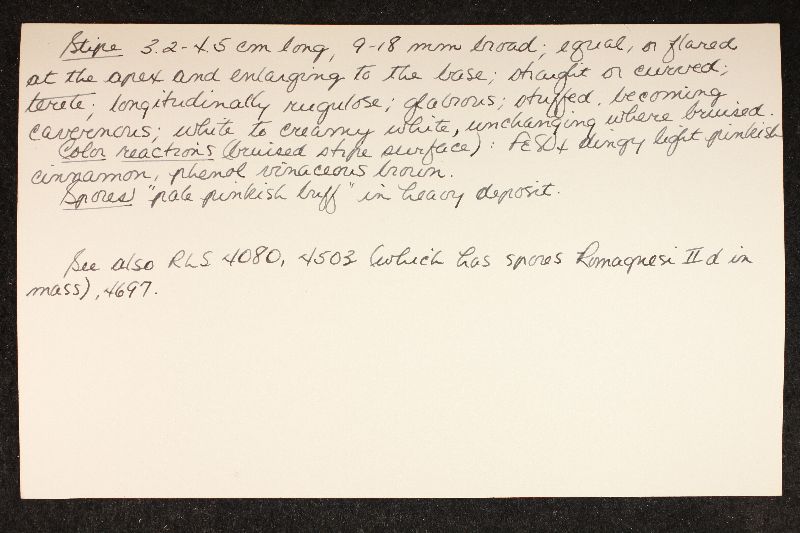 Stipe 3.2-4.5 cm long, 9-18 mm broad; equal, or flared
at the apex and enlarging to the base; straight or curved;
terete; longitudinally rugulose; glabrous; stuffed, becoming
cavernous; white to creamy white, unchanging where bruised.
Color reactions (bruised stipe surface): FeSO4 dingy light pinkish
cinnamon, phenol vinaceous brown.
Spores "pale pinkish buff" in heavy deposit.
See also RLS 4080, 4503 (which has spores Romagnesi II d in
mass), 4697.